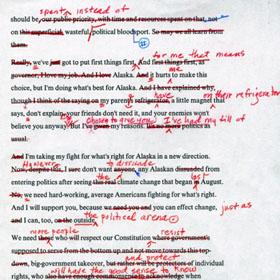 spent, instead of
should be our public priority, with time and resources spent on that, not
on this superficial wasteful political bloodsport. So may we all learn from
them.
for me that means
Really, we've just got to put first things first, And first things first, as
me
governor, I love my job. And I love Alaska. And it hurts to make this
choice, but I'm doing what's best for Alaska. And I have explained why,
have on their refrigerator
though I think of the saying on my parents' refrigerator, a little magnet that
says, don't explain your friends don't need it, and your enemies won't
choose to give you I've had my fill of
believe you anyway. But I'm given my reasons. It's no more politics as
usual.
And I'm taking my fight for what's right for Alaska in a new direction.
However to dissuade
Now, despite this, I sure don't want any Alaskan dissuaded from
last
entering politics after seeing the real climate change that began in August.
No, we need hard-working, average Americans fighting for what's right.
just as
And I will support you, because we need you and you can effect change,
the political arena.
and I can, too, on the outside
more people resist
We need those who will respect our Constitution where government's
supposed to serve from the bottom up and not move towards this top-
and protect
down, big-government takeover but rather will be protectors of individual
will have the good sense to know
rights, who also have enough common sense to acknowledge when